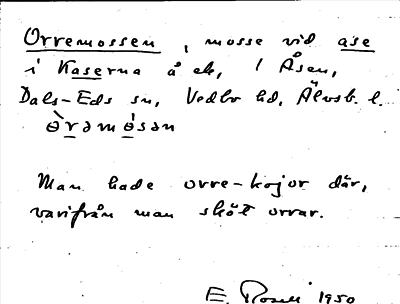 Orremossen, mosse vid åse
i Kaserna å ek, 1 Åsen,
Dals-Eds sn, Vedbo hd, Älvsb. l.
Man hade orre-kojor där,
varifrån man sköt orrar.
E. 1950